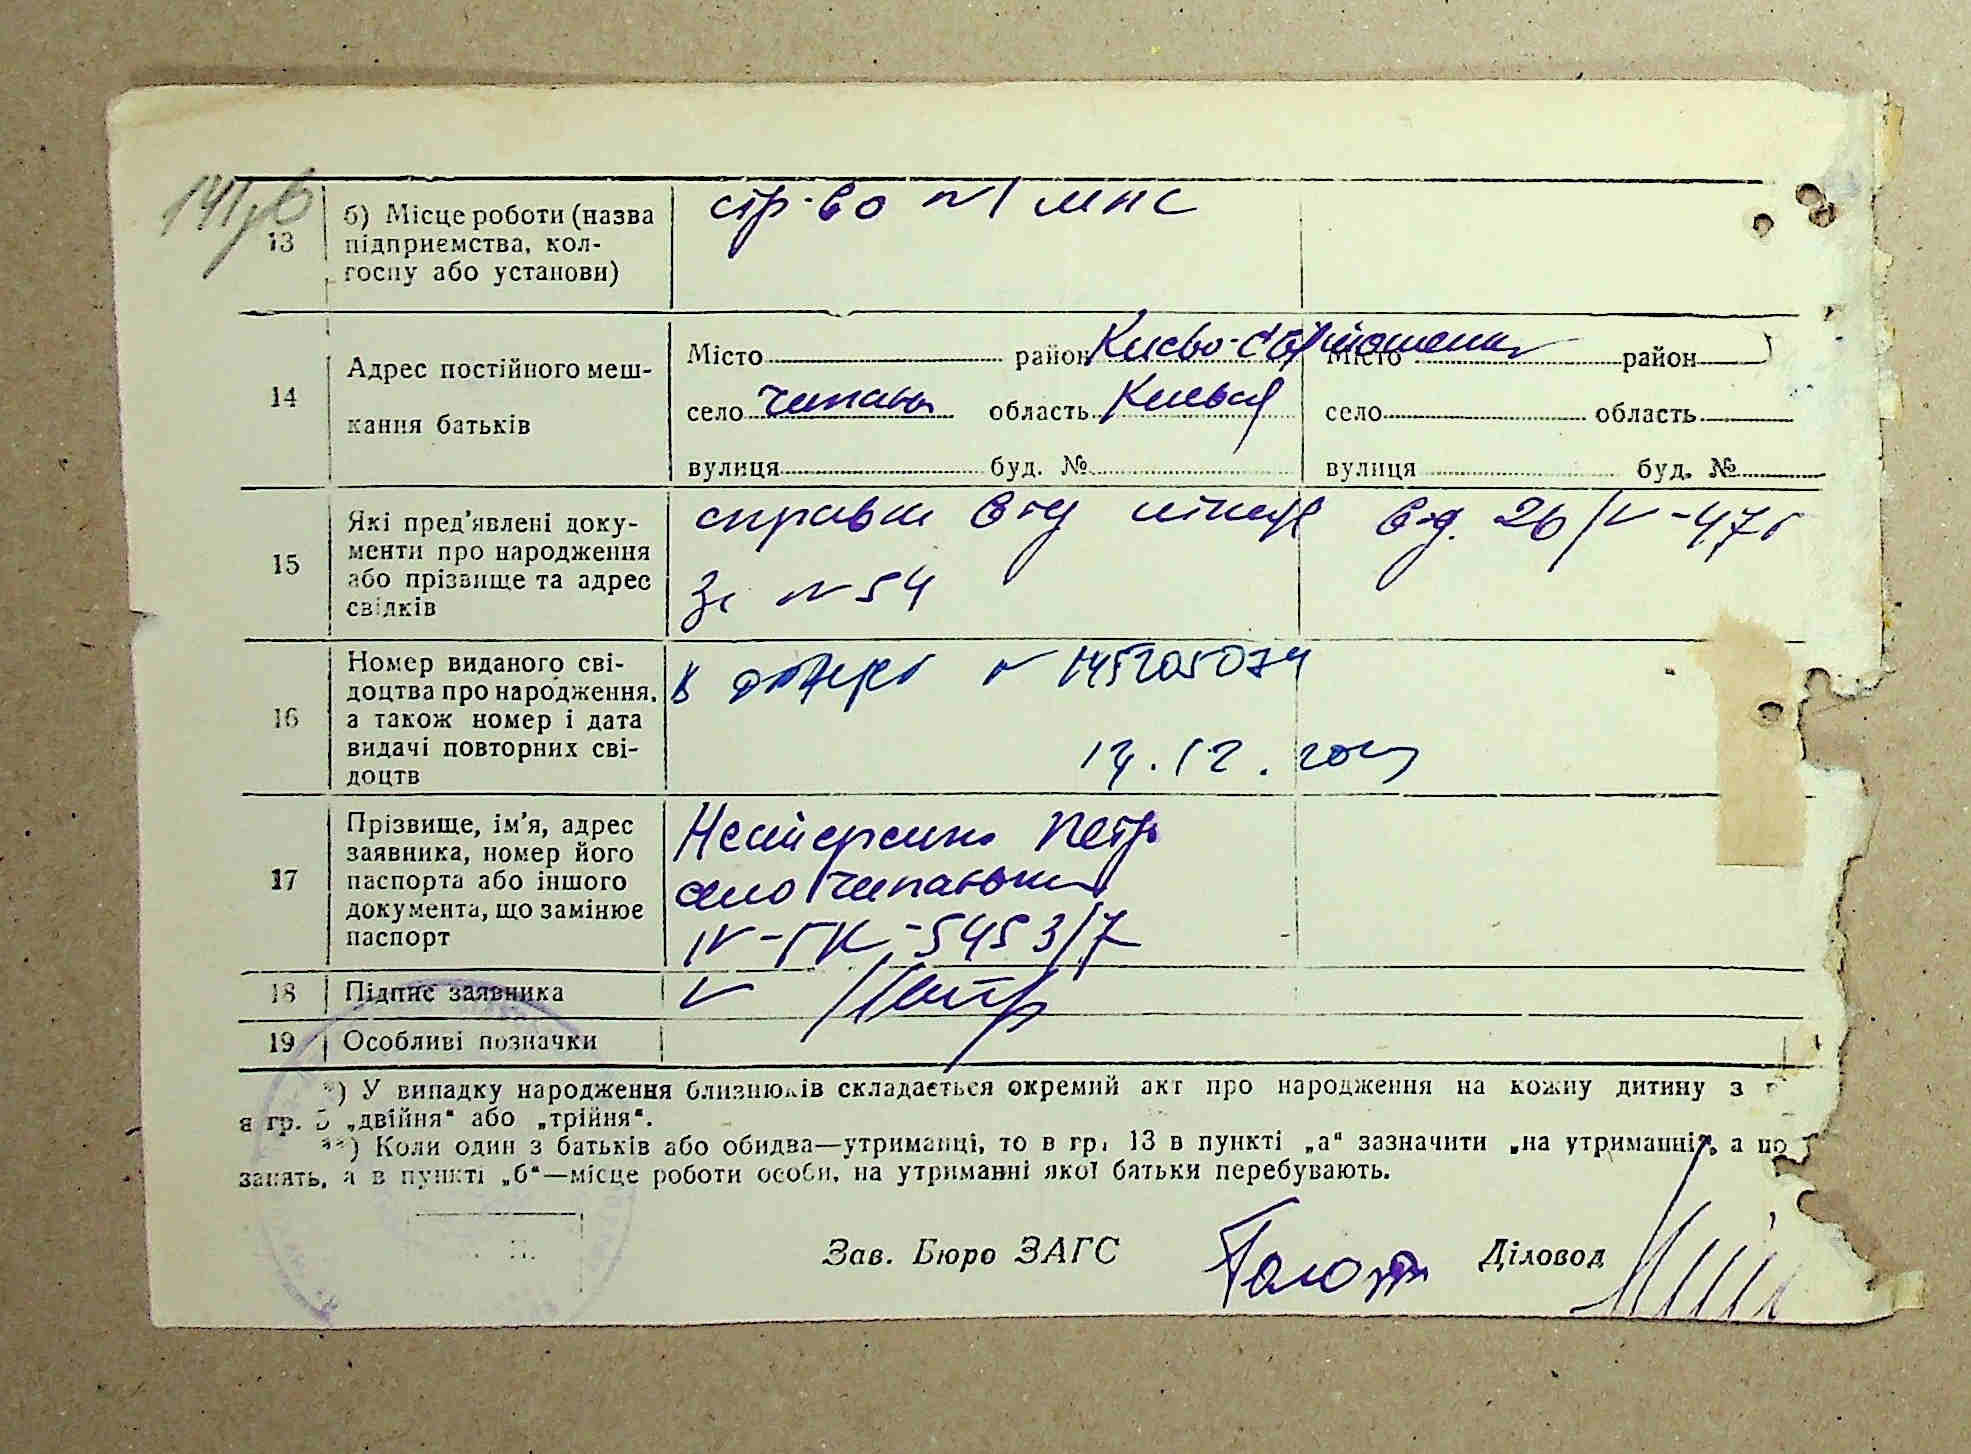 13
б) Місце роботи (назва
підприємства, кол-
госпу або установи)
стр-во №1 МПС
14
Адрес постійного меш-
кання батьків
Місто район Києво-Святошин Місто район
село Чипаєв область Київськ село область
вулиця буд. № вулиця буд. №
15
Які пред'явлені доку-
менти про народження
або прізвище та адрес
свідків
справки від від. 26/V-47 г
За №54
16
Номер виданого сві-
доцтва про народження,
а також номер і дата
видачі повторних сві-
доцтв
В №
17
Прізвище, ім'я, адрес
заявника, номер його
паспорта або іншого
документа, що замінює
паспорт
Нестеренко Петр
село
IV-ГК-5453/7
18 Підпис заявника
19 Особливі позначки
*) У випадку народження близнюків складається окремий акт про народження на кожну дитину з
в гр. 5 „двійня“ або „трійня“.
**) Коли один з батьків або обидва—утриманці, то в гр. 13 в пункті „а“ зазначити „на утриманні“, а по
занять, а в пункті „б“—місце роботи особи, на утриманні якої батьки перебувають.
Зав. Бюро ЗАГС Діловод